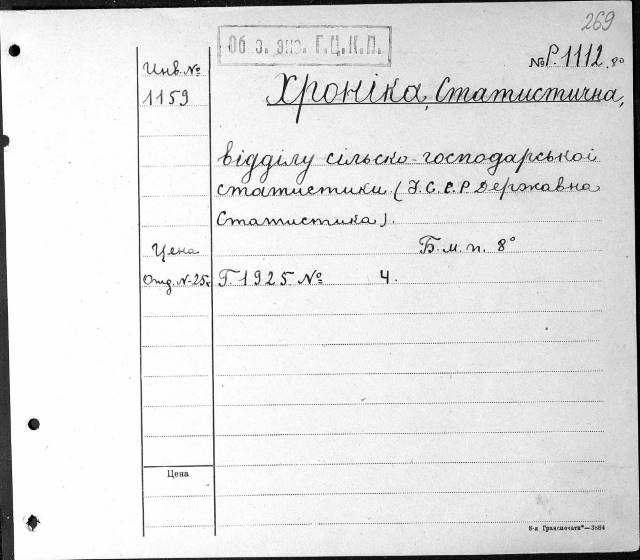 269
Об з. экз. Г.Ц.К.П.
№Р.1112.8º
Инв. №
1159
Хроніка, Статистична,
відділу сільско-господарської
статистики (У.С.Р.Р Державна
Статистика).
Цена
Б.м.п. 8º
Отд. №-25к
Г. 1925 № 4.
Цена
8-я „Транспечать“—3584